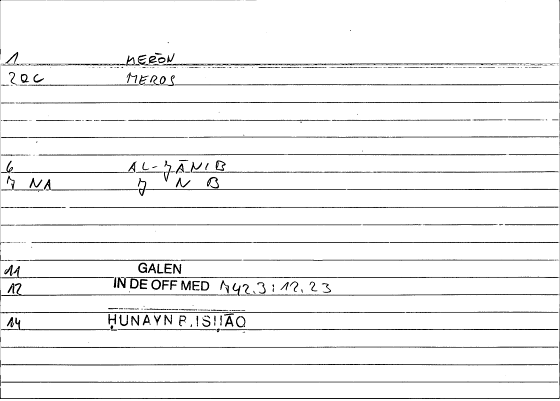 1 MERŌN
2QC MEROS
6 AL-ǦĀNIB
7 NA Ǧ N B
11 GALEN
12 IN DE OFF MED 742.3 : 12, 23
14 ḤUNAYN B. ISḤĀQ